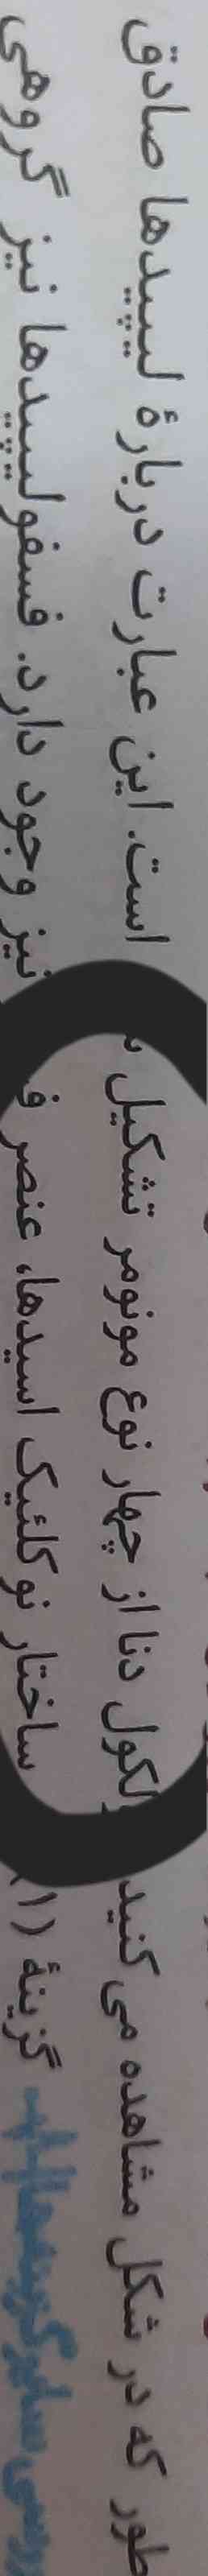 طور که در شکل مشاهده می کنید لکول دنا از چهار نوع مونومر تشکیل است. این عبارت دربارهٔ لیپیدها صادق
سایر گزینه‌ها: گزینهٔ (۱) ساختار نوکلئیک اسیدها، عنصر ف نیز وجود دارد. فسفولیپیدها نیز گروهی